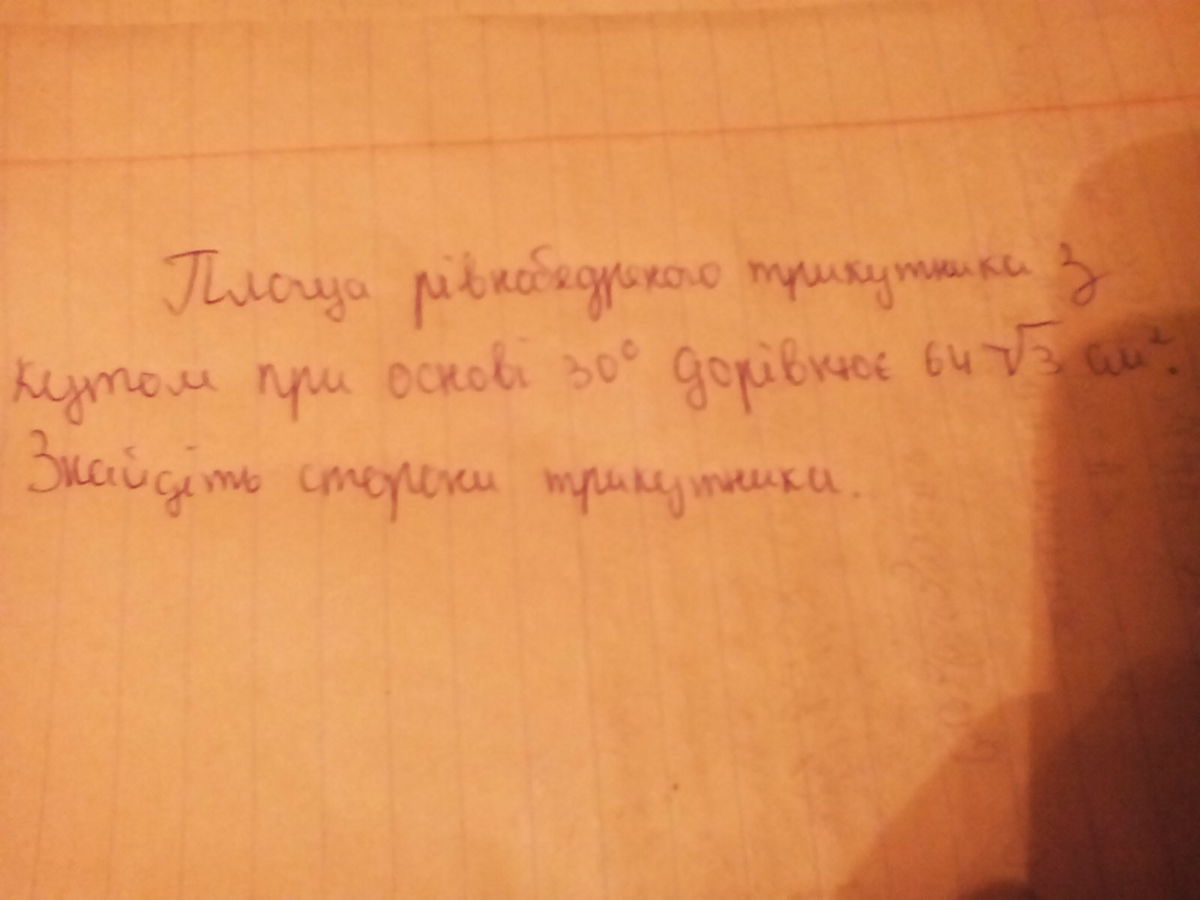 Площа рівнобедреного трикутника з
кутом при основі 30° дорівнює 64√3 см².
Знайдіть сторони трикутника.